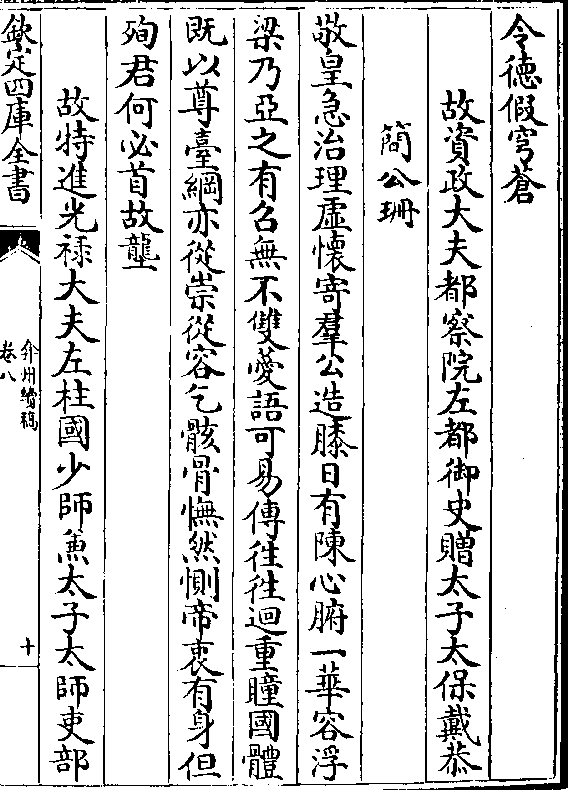 令德假穹蒼
故資政大夫都察院左都御史贈太子太保戴恭
簡公珊
敬皇急治理虛懷寄羣公造膝日有陳心腑一華容浮
梁乃亞之有召無不雙憂語可易傳徃徃迴重瞳國體
既以尊臺綱亦從崇從容乞骸骨憮然惻帝衷有身但
殉君何必首故壟
故特進光祿大夫左柱國少師兼太子太師吏部
欽定四庫全書
弇州續稿
卷八
十